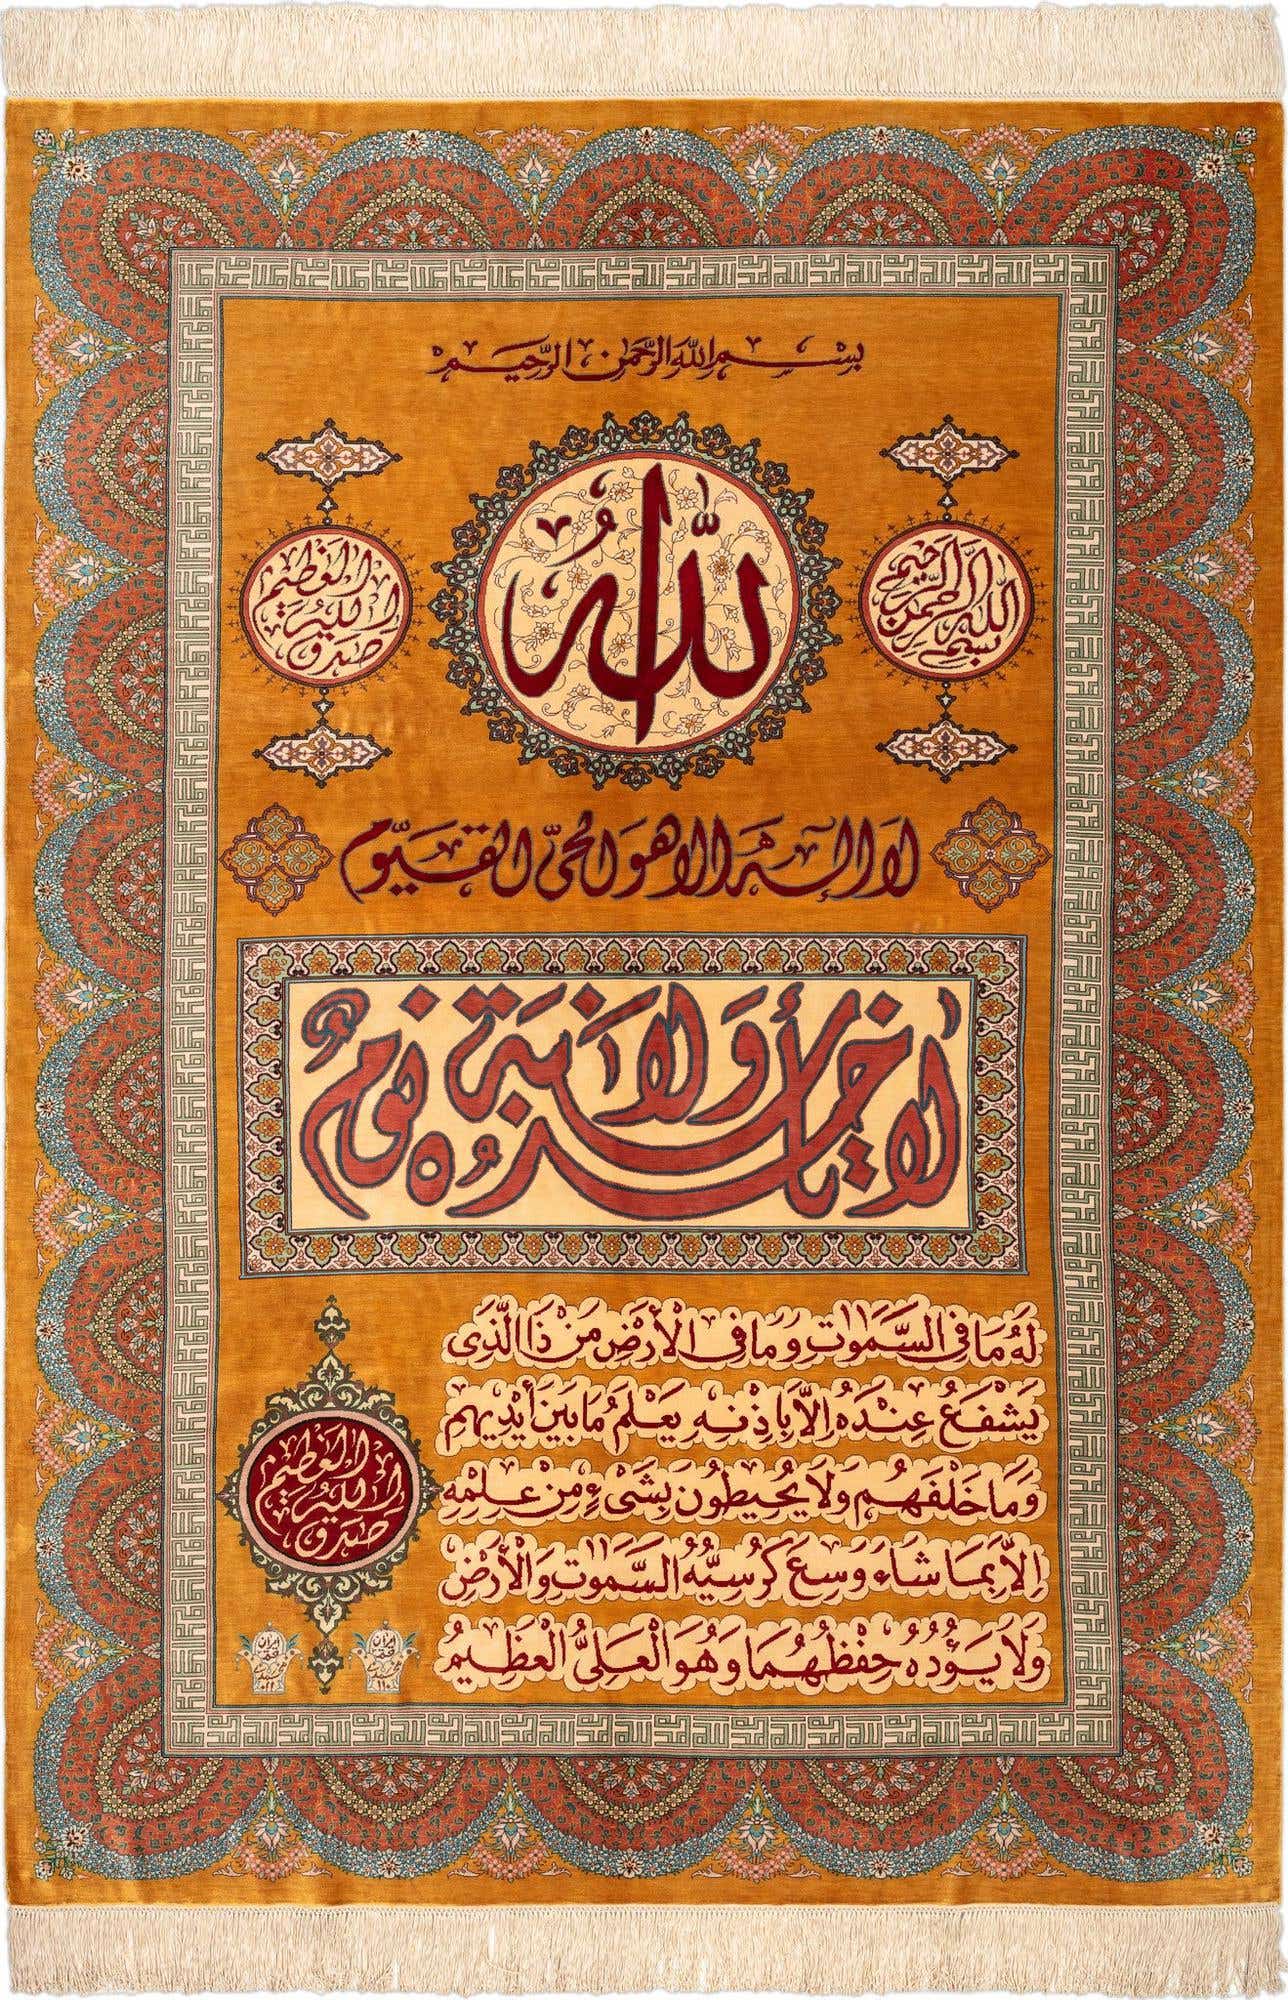 بسم الله الرحمن الرحيم
بسم الله الرحمن الرحيم
الله
صدق الله العلي العظيم
لا اله الا هو الحي القيوم
لا تأخذه سنة ولا نوم
لَهُ مَا فِى السَّمٰوٰتِ وَمَا فِى الْأَرْضِ مَنْ ذَا الَّذِى
يَشْفَعُ عِنْدَهُ اِلَّا بِاِذْنِهِ يَعْلَمُ مَا بَيْنَ أَيْدِيهِم
وَمَا خَلْفَهُم وَلَا يُحِيطُونَ بِشَىْءٍ مِنْ عِلْمِهِ
اِلَّا بِمَا شَاءَ وَسِعَ كُرْسِيُّهُ السَّمٰوٰتِ وَالْأَرْضَ
وَلَا يَؤُدُهُ حِفْظُهُمَا وَهُوَ الْعَلِىُّ الْعَظِيمُ
صدق الله العلي العظيم
ایران
قم
ایران
قم